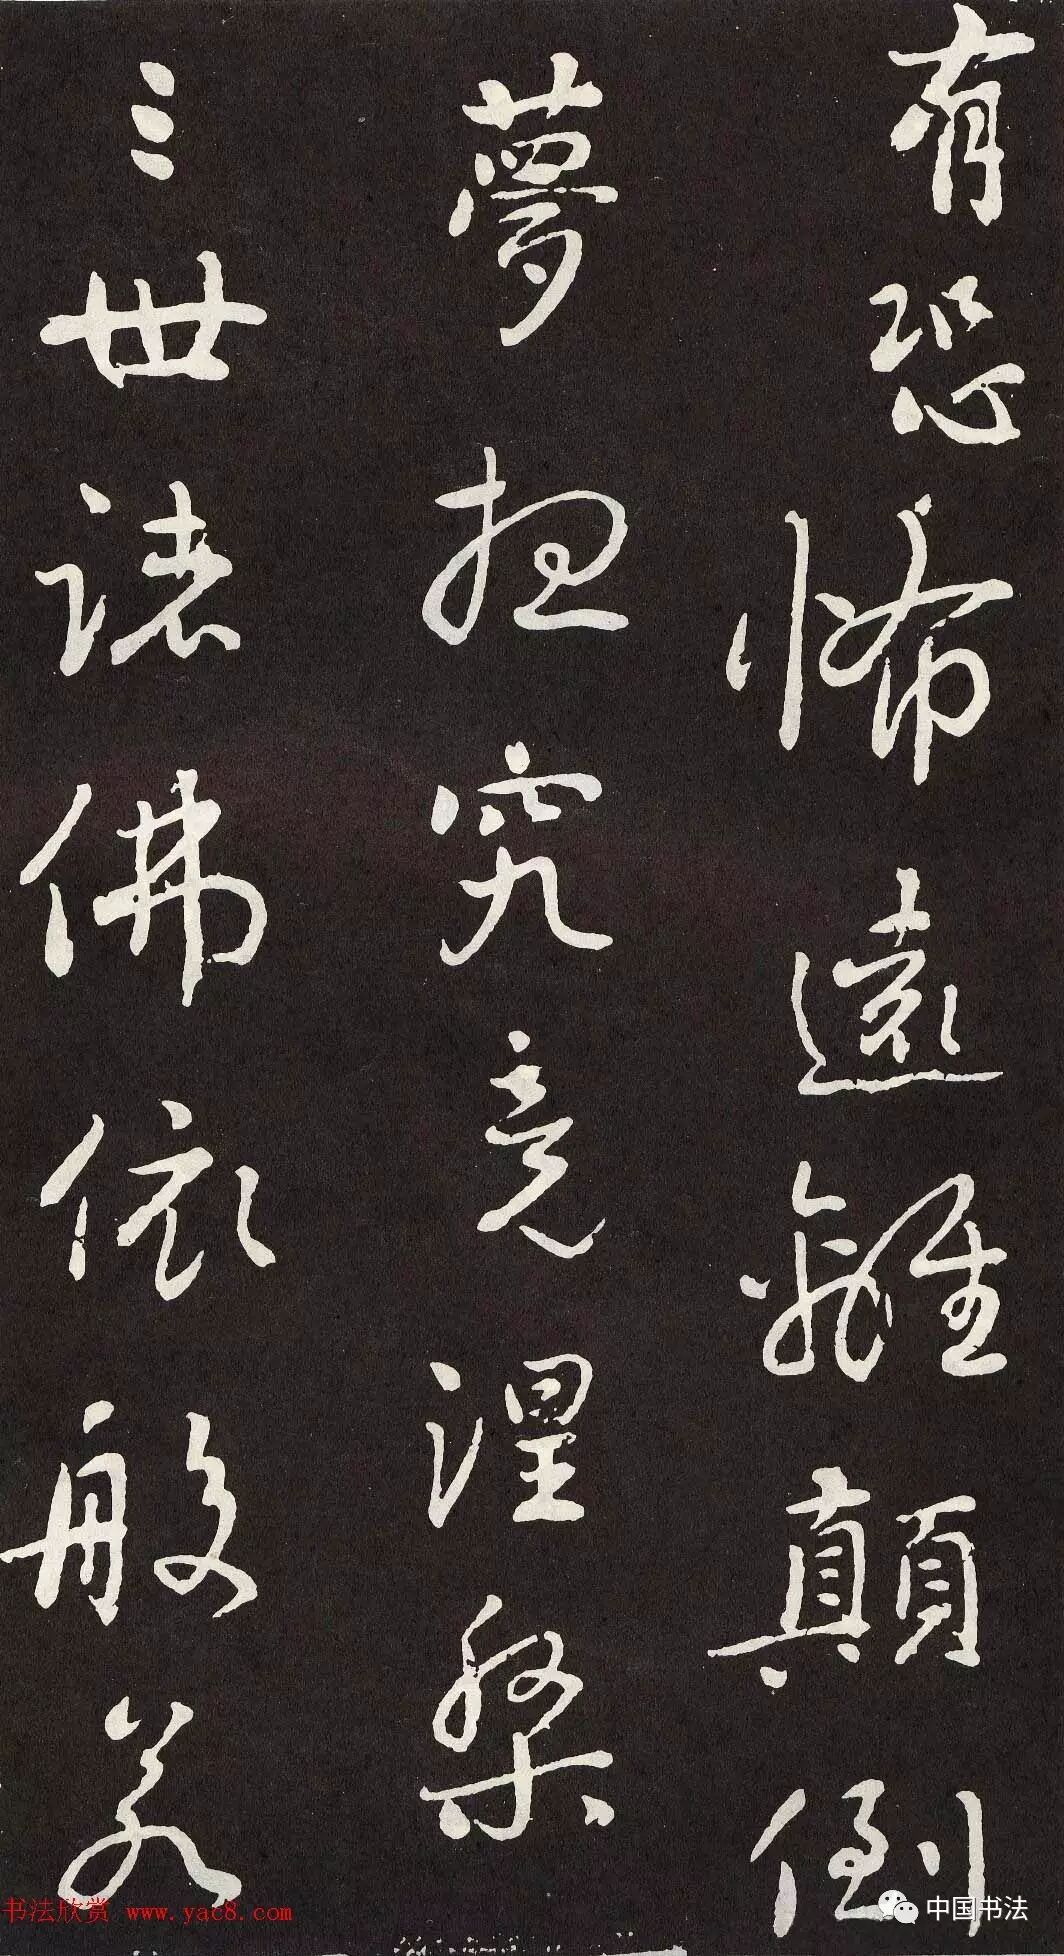 有恐怖遠離顛倒
夢想究竟涅槃
三世諸佛依般若
书法欣赏 www.yac8.com
中国书法